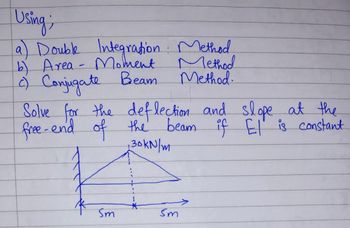 Using;
a) Double Integration Method
b) Area - Moment Method
c) Conjugate Beam Method.
Solve for the deflection and slope at the
free-end of the beam if EI is constant
30kN/m
5m 5m